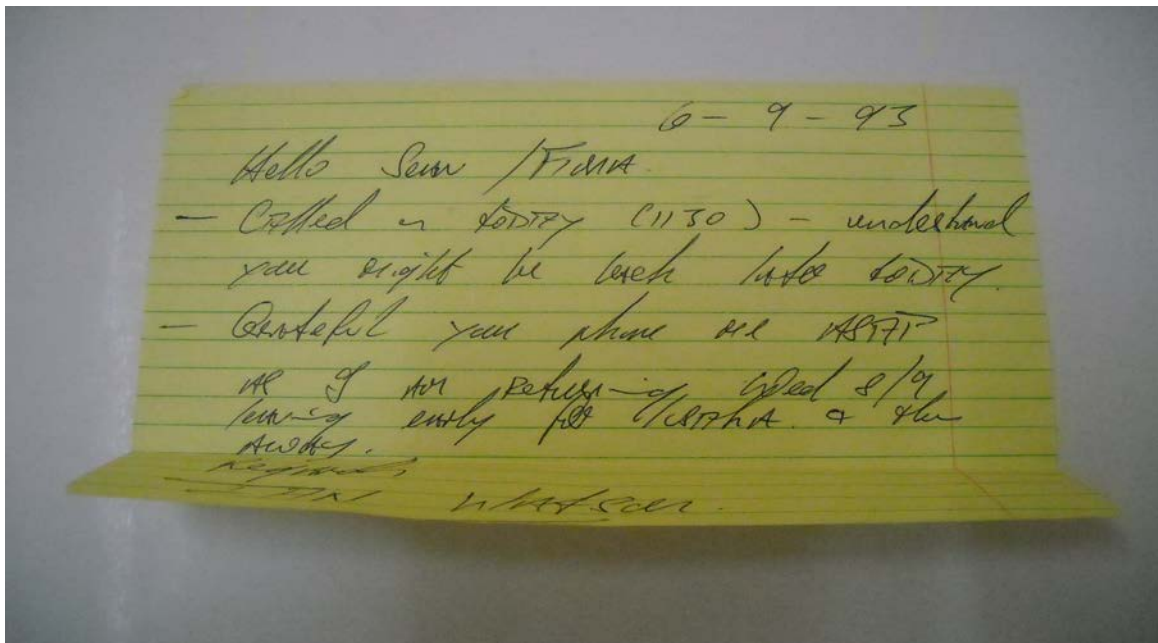 6 - 9 - 93
Hello Sean /
- Called in today (1130) - understand
you might be back later today.
- Grateful you phone me ASAP
as I am returning Wed 8/9
leaving early for & then
away.
Regards,
Whatson.